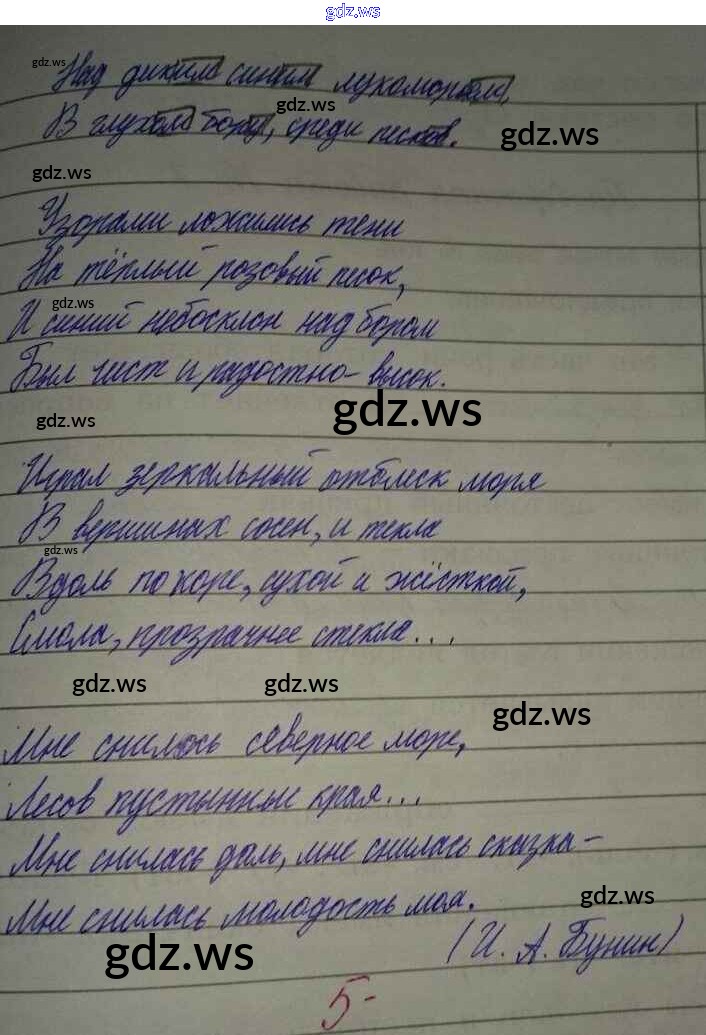 gdz.ws
gdz.ws
Над диким синим лукоморьем,
gdz.ws
В глухом бору, среди песков.
gdz.ws
gdz.ws
Узорами ложились тени
На тёплый розовый песок,
gdz.ws
И синий небосклон над бором
Был чист и радостно-высок.
gdz.ws
gdz.ws
Играл зеркальный отблеск моря
В вершинах сосен, и текла
gdz.ws
Вдоль по коре, сухой и жёсткой,
Смола, прозрачнее стекла...
gdz.ws gdz.ws
gdz.ws
Мне снилось северное море,
Лесов пустынные края...
Мне снилась даль, мне снилась сказка-
gdz.ws
Мне снилась молодость моя.
(И. А. Бунин)
gdz.ws
5-